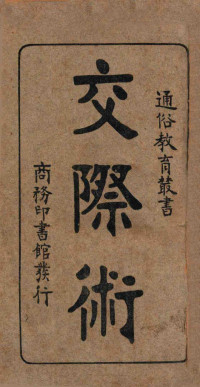 通俗教育叢書
交際術
商務印書館發行